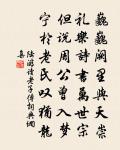 巍巍闕里與天崇
禮樂詩書萬世宗
但說周公曾入夢
寧於老氏歎猶龍
陸游讀老子傳詞典網
集